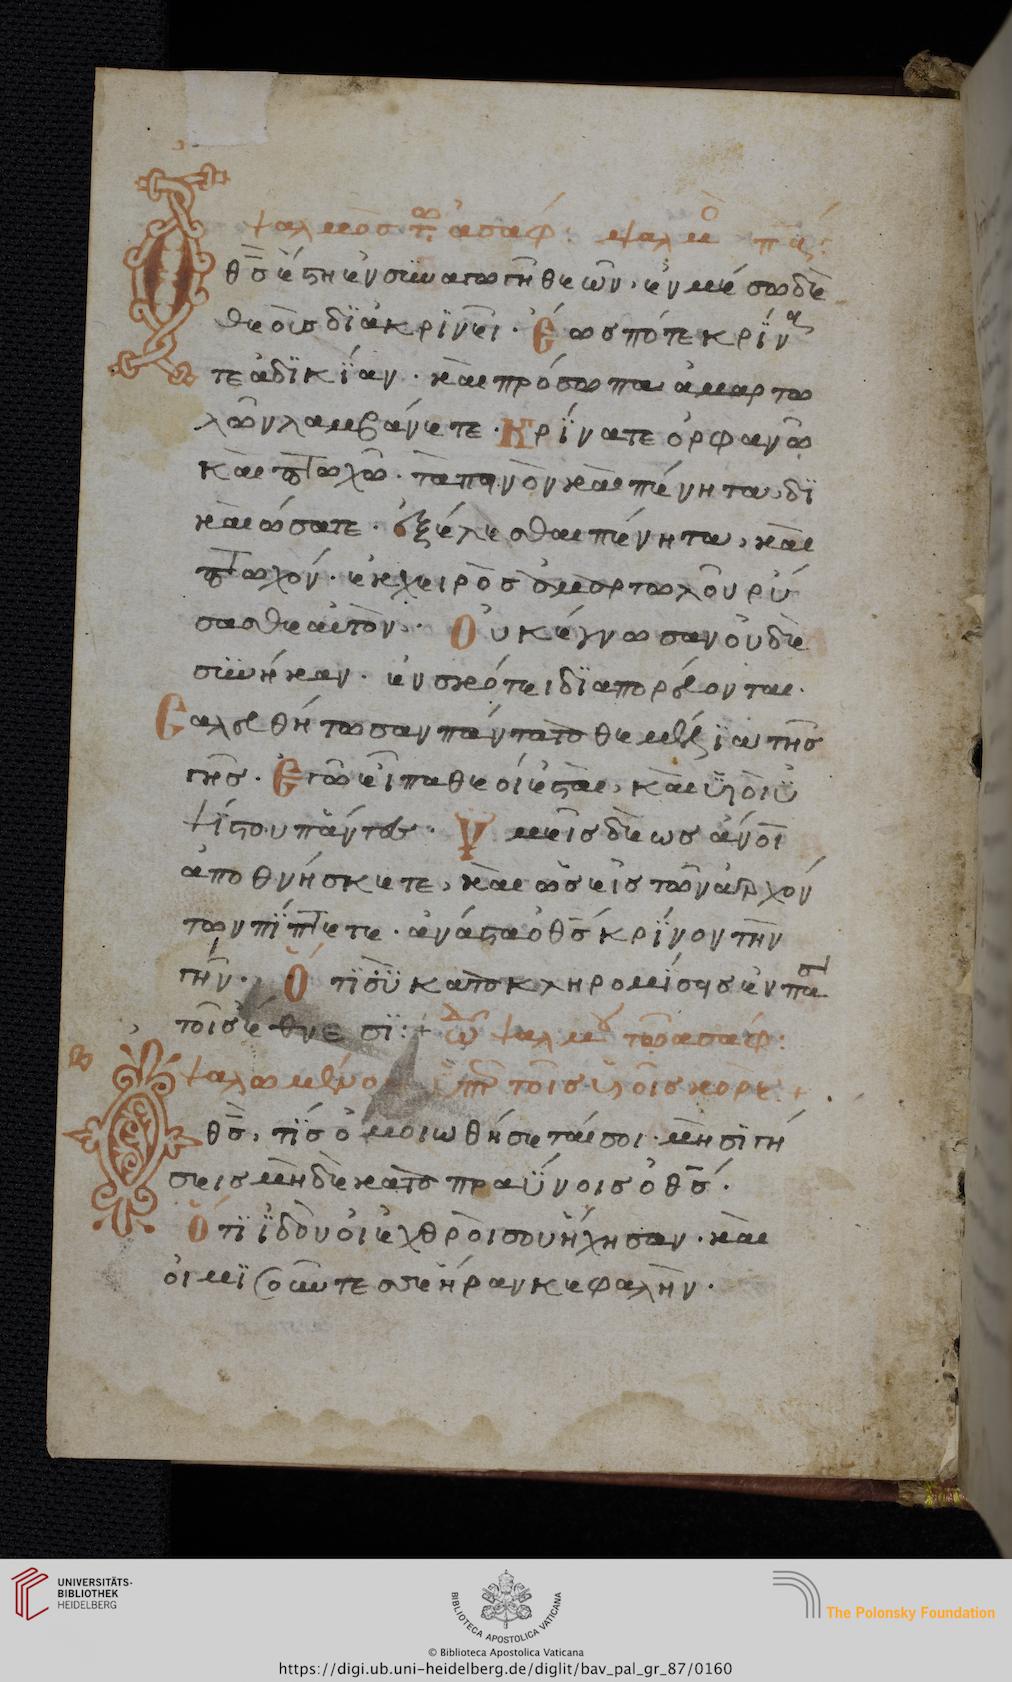 ψαλμὸς τῶ ἀσάφ: ψαλμὸ πα:
Ο θς ἔστη ἐν συναγωγῆ θεῶν. ἐν μέσω δὲ
θεοὺς διακρίνει. Ἕως πότε κρίνα
τε ἀδικίαν. καὶ πρόσωπα ἁμαρτω
λῶν λαμβάνετε. Κρίνατε ὀρφανῶ
καὶ πτωχῶ. ταπεινὸν καὶ πένητα δι
καιώσατε. ἐξέλεσθαι πένητα, καὶ
πτωχόν. ἐκ χειρὸς ἁμαρτωλοῦ ρύ
σασθε αὐτὸν. Οὐκ ἔγνωσαν οὐδὲ
συνῆκαν. ἐν σκότει διαπορεύονται.
Σαλευθήτωσαν πάντα τὰ θεμέλια τῆς
γῆς. Ἐγὼ εἶπα θεοί ἐσται, καὶ υἱοὶ ὑ
ψίστου πάντες. Ὑμεῖς δὲ ὡς ἄνοι
ἀποθνήσκετε, καὶ ὡς εἷς τῶν ἀρχόν
των πίπτετε. ἀνάστα ὁ θς κρίνον τὴν
γῆν. Ὅτι σὺ κατακληρομίσης ἐν πᾶσι
τοῖς ἔθνεσι:+ ὠδὴ ψαλμοῦ τῶ ἀσάφ:
τοῖς υἱοῖς κορε:
Ο θς, τίς ὁμοιωθήσεταί σοι. μὴ σιγή
σεις μηδὲ καταπραΰνοις ὁ θς.
Ὅτι ἰδοὺ οἱ ἐχθροί σου ἤχησαν. καὶ
οἱ μισοῦντές σε ἦραν κεφαλὴν.
UNIVERSITÄTS-
BIBLIOTHEK
HEIDELBERG
BIBLIOTECA APOSTOLICA VATICANA
The Polonsky Foundation
© Biblioteca Apostolica Vaticana
https://digi.ub.uni-heidelberg.de/diglit/bav_pal_gr_87/0160